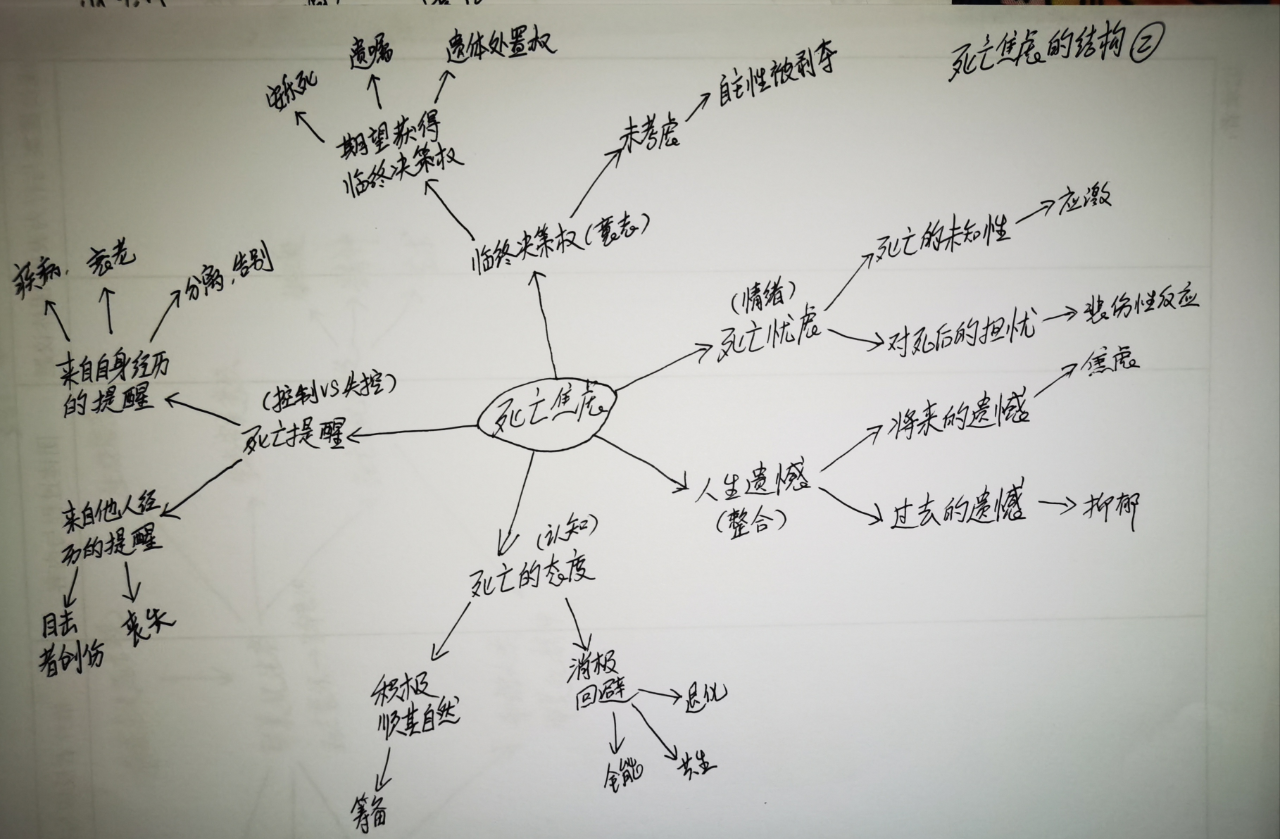 死亡焦虑的结构②
安乐死
遗嘱
遗体处置权
期望获得
临终决策权
未考虑
自主性被剥夺
临终决策权(意志)
(情绪)
死亡忧虑
死亡的未知性
应激
对死后的担忧
哀伤性反应
人生遗憾
(整合)
将来的遗憾
焦虑
过去的遗憾
抑郁
死亡焦虑
(控制VS失控)
死亡提醒
来自自身经历
的提醒
疾病,
衰老
分离,告别
来自他人经
历的提醒
目击
者创伤
丧失
(认知)
死亡的态度
积极
顺其自然
筹备
消极
回避
退化
共生
全能